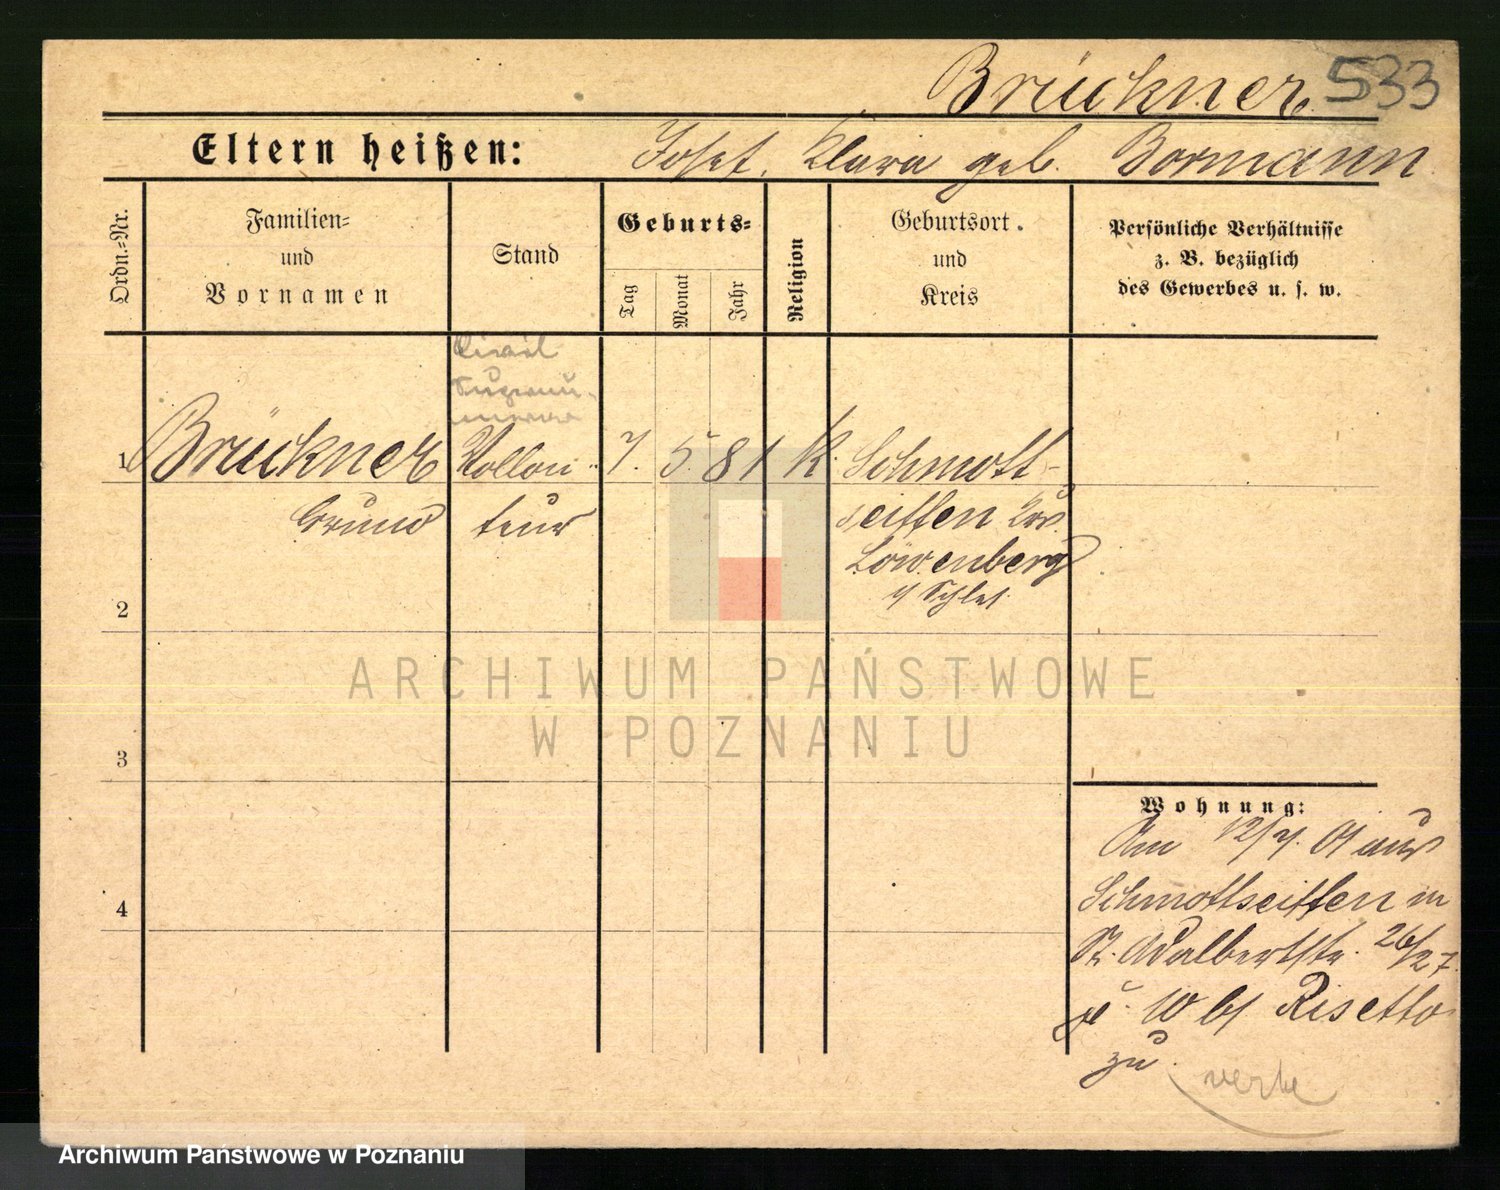 Brückner 533
Eltern heißen: Josef, Klara geb. Bormann
Ordn.=Nr.
Familien=
und
Vornamen
Stand
Geburts=
Tag
Monat
Jahr
Religion
Geburtsort
und
Kreis
Persönliche Verhältnisse
z. B. bezüglich
des Gewerbes u. s. w.
Civil
1 Brückner Vollon- 7. 5. 81 K. Schmott-
Bruno teur seiffen Krs
Löwenberg
2
i/ Schles.
3
4
Wohnung:
Am 12/7. 01 aus
Schmottseiffen in
St. Adalbertstr. 26/27
10 b/ Risetto
zu
ARCHIWUM PAŃSTWOWE
W POZNANIU
Archiwum Państwowe w Poznaniu